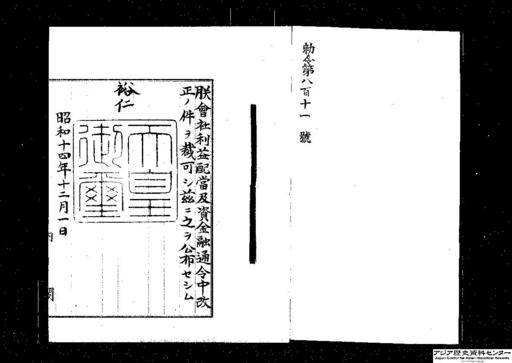 勅令第八百十一號
朕會社利益配當及資金融通令中改
正ノ件ヲ裁可シ茲ニ之ヲ公布セシム
裕仁
天皇御璽
昭和十四年十二月一日
内閣
アジア歴史資料センター
Japan Center for Asian Historical Records